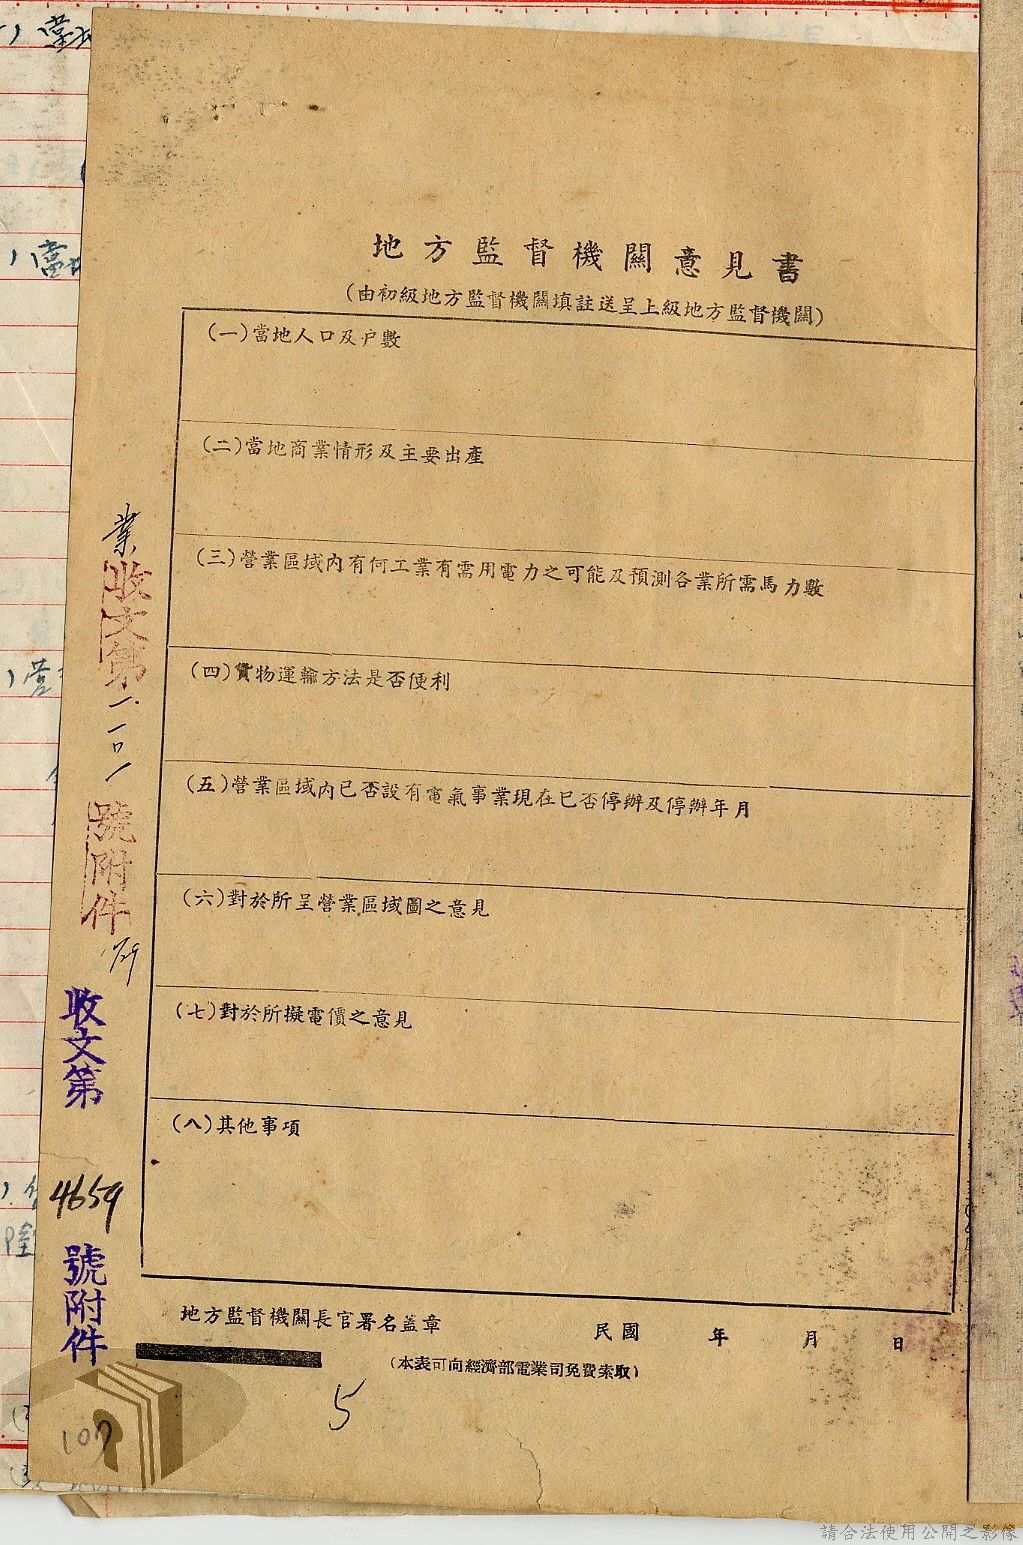 地方監督機關意見書
(由初級地方監督機關填註送呈上級地方監督機關)
(一)當地人口及户數
(二)當地商業情形及主要出產
(三)營業區域内有何工業有需用電力之可能及預測各業所需馬力數
(四)貨物運輸方法是否便利
(五)營業區域内已否設有電氣事業現在已否停辦及停辦年月
(六)對於所呈營業區域圖之意見
(七)對於所擬電價之意見
(八)其他事項
地方監督機關長官署名蓋章
民國 年 月 日
(本表可向經濟部電業司免費索取)
業收文第一一〇一號附件
收文第4659號附件
5
107
請合法使用公開之影像